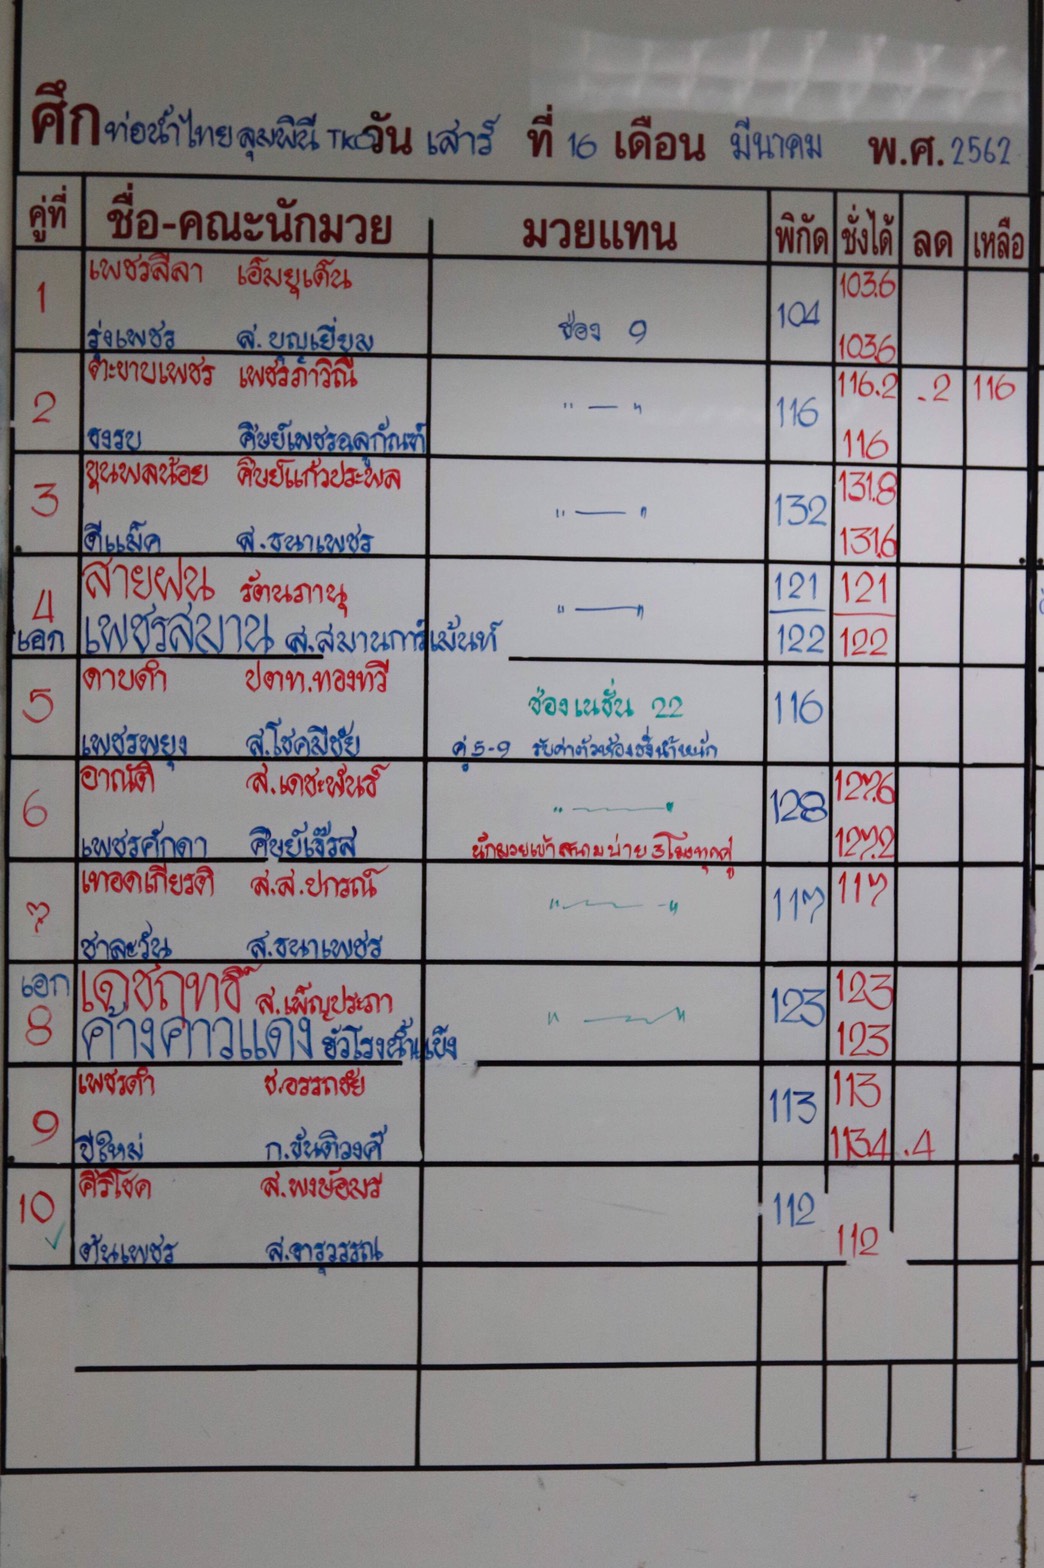 ศึก ท่อน้ำไทยลุมพินี TKO วัน เสาร์ ที่ 16 เดือน มีนาคม พ.ศ. 2562
คู่ที่ ชื่อ-คณะนักมวย มวยแทน พิกัด ชั่งได้ ลด เหลือ
เพชรสีลา เอ็มยูเด้น 103.6
1 ช่อง 9 104
รุ่งเพชร ส.บุญเยี่ยม 103.6
ตะยาบเพชร เพชรภาวิณี 116.2 .2 116
2 " — " 116
ยงรบ ศิษย์เพชรอลุภัณฑ์ 116
ขุนพลน้อย ศิษย์แก้วประพล 131.8
3 " — " 132
ดีแม็ค ส.ธนาเพชร 131.6
สายฝน รัตนภานุ 121 121
4 " — "
เอก เพชรสมาน ส.สมานการ์เม้นท์ 122 122
ดาบดำ ปตท.ทองทวี
5 ช่องเนชั่น 22 116
เพชรพยุง ส.โชคมีชัย คู่ 5-9 รับค่าตัวห้องชั่งน้ำหนัก
อาณัติ ส.เดชะพันธ์ 127.6
6 " — " 128
เพชรศักดา ศิษย์เจ๊รส นักมวยเข้าสนามบ่าย 3 โมงทุกคู่ 127.2
เทอดเกียรติ ส.ส.ปกรณ์ 117
7 " — " 117
ชาละวัน ส.ธนาเพชร
เอก เดชฤทธิ์ ส.เพ็ญประภา 123
8 " — " 123
ค้างคาวแดง ชัวโรงน้ำแข็ง 123
เพชรดำ ช.อรรถชัย 113
9 113
ปีใหม่ ก.ขันติวงศ์ 113.4 .4
ศิริโชค ส.พงษ์อมร
10 112
ต้นเพชร ส.จารุวรรณ 112